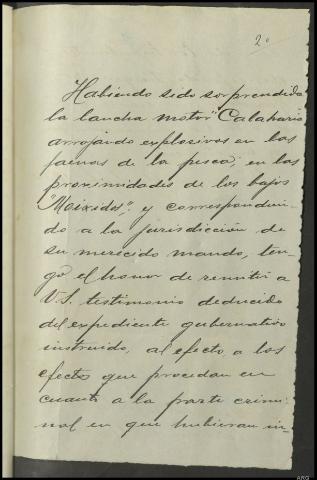 2º
Habiendo sido sorprendida
la lancha motor "Calabario
arrojando explosivos en las
faenas de la pesca, en las
proximidades de los bajos
"Meixidos", y correspondien-
do a la jurisdicción de
su merecido mando, ten-
go el honor de remitir a
V.S. testimonio deducido
del expediente gubernativo
instruido, al efecto, a los
efectos que procedan en
cuanto a la parte crimi-
nal en que hubieran in-
ARG